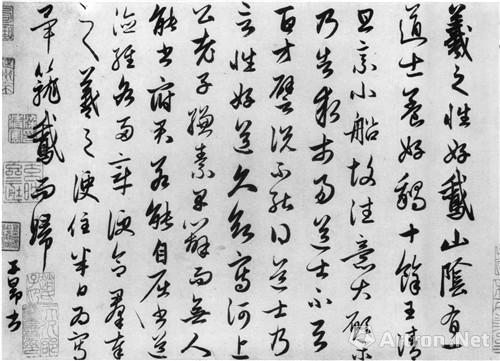 羲之性好鵞山陰有一
道士養好鵝十餘王清
旦乘小船故往意大願樂
乃告求市易道士不與
百方譬說不能得道士乃
言性好道久欲寫河上
公老子縑素早辦而無人
能書府君若能自屈書道
德經各兩章便合羣奉
之羲之便住半日為寫
畢籠鵞而歸
子昂書
Artron.Net